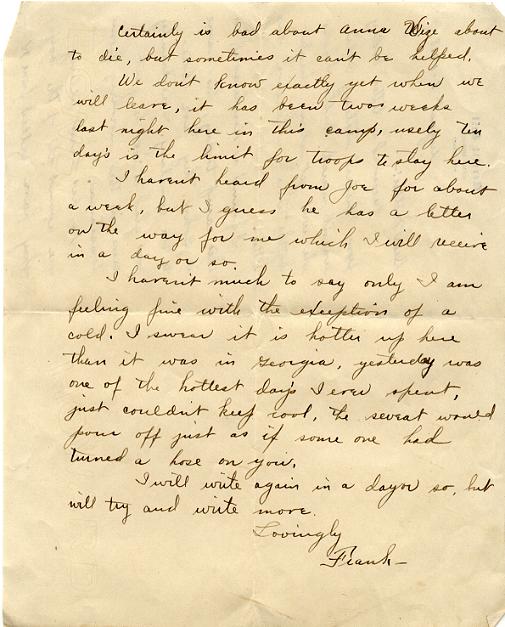 Certainly is bad about Anna Wize about
to die, but sometimes it can't be helped.
We don't know exactly yet when we
will leave, it has been two weeks
last night here in this camp, usely ten
day's is the limit for troops to stay here.
I haven't heard from Joe for about
a week, but I guess he has a letter
on the way for me which I will receive
in a day or so.
I haven't much to say only I am
feeling fine with the exception of a
cold. I swear it is hotter up here
than it was in Georgia, yesterday was
one of the hottest day's I ever spent,
just couldn't keep cool, the sweat would
pour off just as if some one had
turned a hose on you.
I will write again in a day or so, but
will try and write more.
Lovingly
Frank